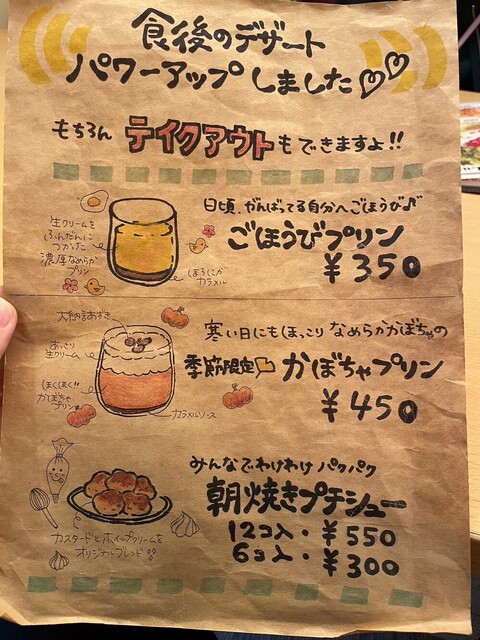 食後のデザート
パワーアップしました♡♡
もちろん テイクアウトもできますよ!!
日頃、がんばってる自分へごほうび♪
ごほうびプリン
¥350
生クリームを
ふんだんに
つかった
濃厚なめらか
プリン
ほろにが
カラメル
寒い日にもほっこり なめらかかぼちゃの
季節限定 かぼちゃプリン
¥450
大納言あずき
あっさり
生クリーム
ほくほく!!
かぼちゃ
プリン
カラメルソース
みんなでわけわけ パクパク
朝焼きプチシュー
12コ入・¥550
6コ入・¥300
カスタードとホイップクリームを
オリジナルブレンド